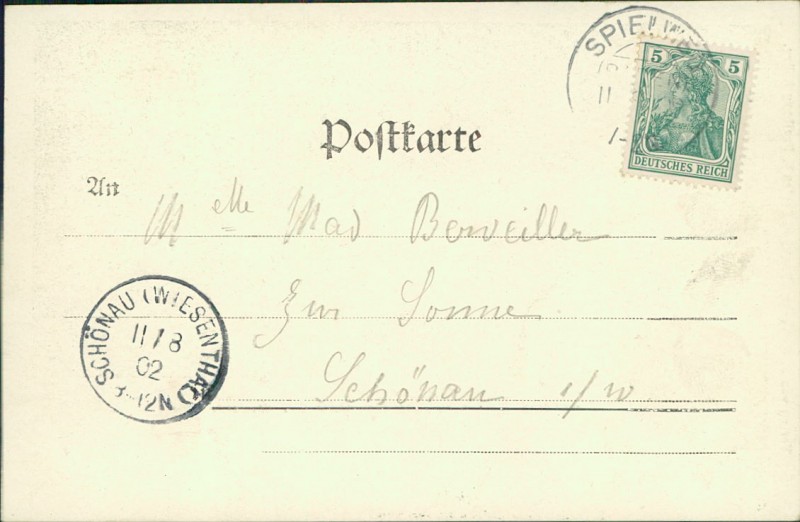 SPIEL
II
5 5
DEUTSCHES REICH
Postkarte
An
Melle Mad Berweiller
Zur Sonne
Schönau i/W
SCHÖNAU (WIESENTHAL)
11/8
02
-12N